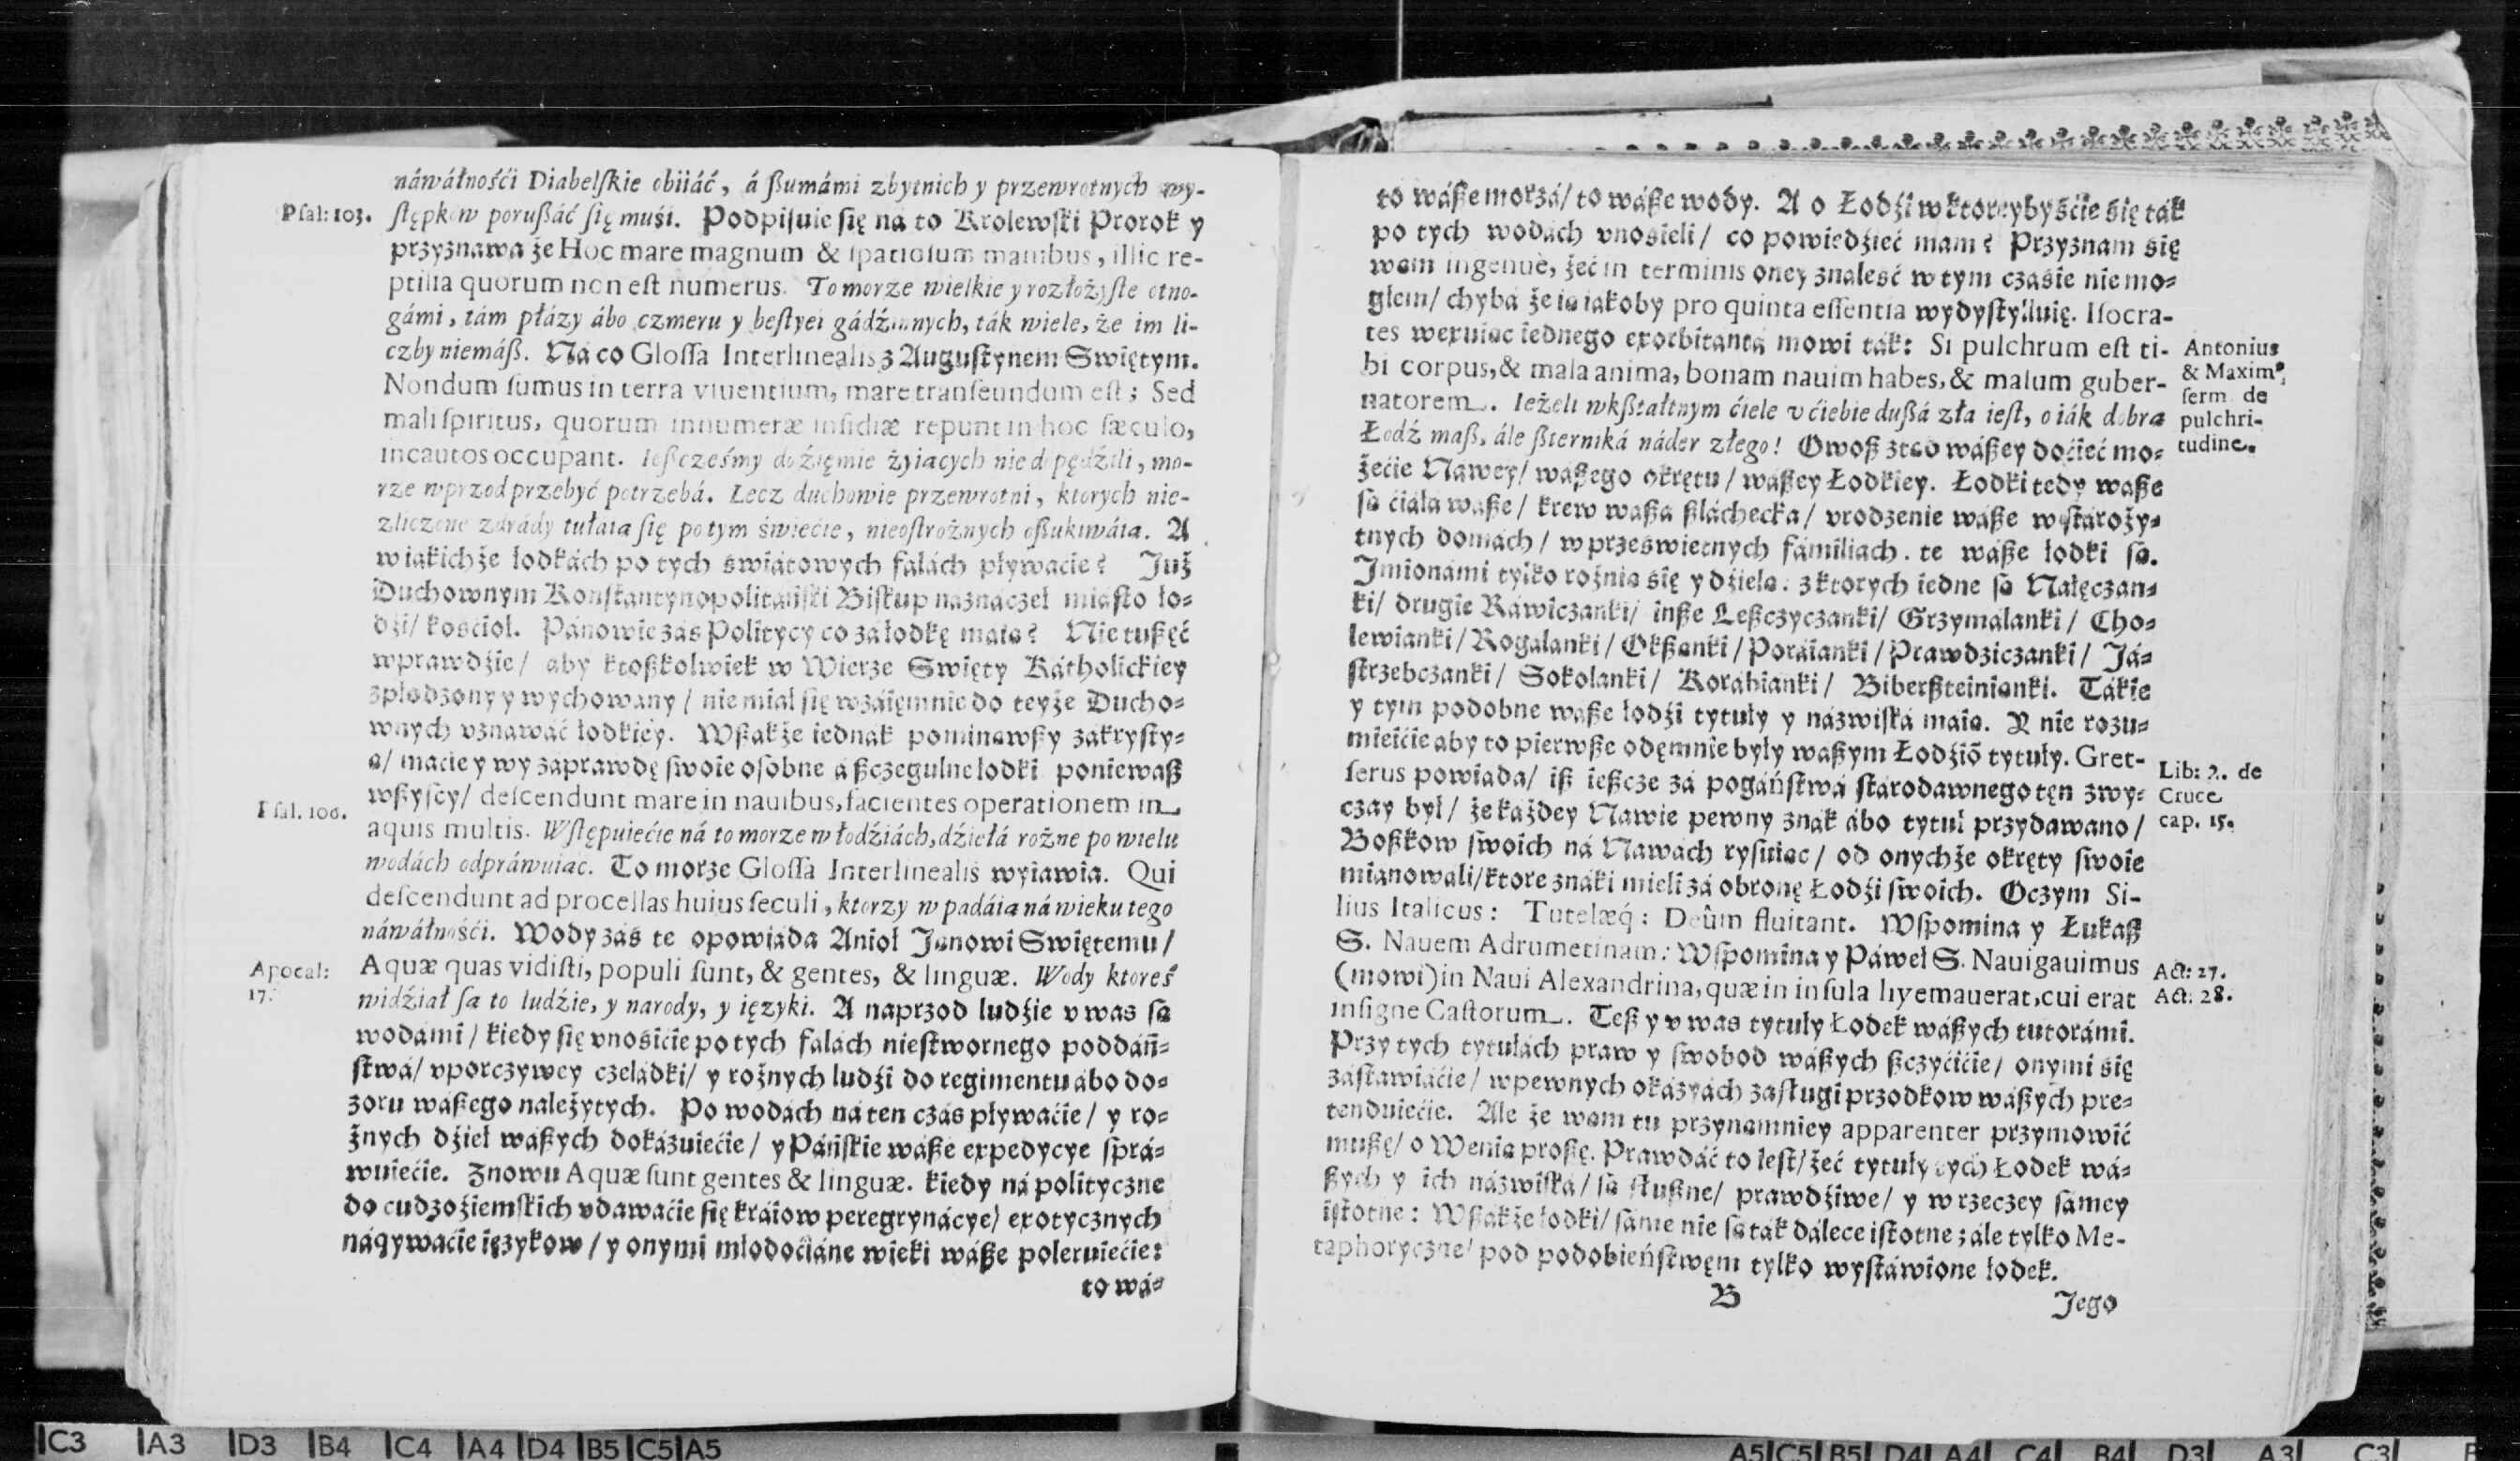 náwáłnośći Diabelſkie obiiáć, á ßumámi zbytnich y przewrotnych wy-
Pſal: 103.
ſtępkow porußáć ſię muśi. Podpiſuie ſię na to Krolewſki Prorok y
przyznawa że Hoc mare magnum & ſpatioſum manibus, illic re-
ptilia quorum non eſt numerus. To morze wielkie y rozłożyſte otno-
gámi, tám płázy ábo czmeru y beſtyei gádźinnych, ták wiele, że im li-
czby niemáß. Ná co Gloſſa Interlinealis z Auguſtynem Swiętym.
Nondum ſumus in terra viuentium, mare tranſeundum eſt; Sed
mali ſpiritus, quorum innumeræ inſidiæ repunt in hoc ſæculo,
incautos occupant. Ießcześmy do źięmie żyiacych nie dopędźili, mo-
rze wprzod przebyć potrzebá. Lecz duchowie przewrotni, ktorych nie-
zliczone zdrády tułaia się po tym świećie, nieoſtrożnych oßukiwáia. A
w iakichże łodkách po tych światowych falách pływaćie? Już
Duchownym Konſtantynopolitańſki Biſkup náznáczeł miáſto ło-
dźi/ kośćioł. Pánowie záś Politycy co zá łodkę máia? Nie tußęć
wprawdźie/ aby ktoßkolwiek w Wierze Swięty Kátholickiey
zpłodzony y wychowany/ nie miał się wzáięmnie do teyże Ducho-
wnych vznawáć łodkiey. Wßákże iednák pominawßy zákryſty-
a/ maćie y wy záprawdę ſwoie oſobne á ßczegulne łodki poniewaß
Pſal. 106.
wßyſcy/ deſcendunt mare in nauibus, facientes operationem in
aquis multis. Wſtępuiećie ná to morze w łodźiách, dźiełá rożne po wielu
wodách odpráwuiac. To morze Gloſſa Interlinealis wyiawia. Qui
deſcendunt ad procellas huius ſeculi, ktorzy wpadáia ná wieku tego
náwáłnośći. Wody záś te opowiáda Anioł Janowi Swiętemu/
Apocal:
17.
Aquæ quas vidiſti, populi ſunt, & gentes, & linguæ. Wody ktoreś
widźiał ſa to ludźie, y narody, y ięzyki. A naprzod ludźie v was ſa
wodámi/ kiedy się vnośićie po tych falách nieſtwornego poddáń-
ſtwá/ vporczywey czeládki/ y rożnych ludźi do regimentu ábo do-
zoru wáßego należytych. Po wodách ná ten czás pływaćie/ y ro-
żnych dźieł wáßych dokázuiećie/ y Páńſkie wáße expedycye ſprá-
wuiećie. Znowu Aquæ ſunt gentes & linguæ. kiedy ná polityczne
do cudzoźiemſkich vdawaćie się kráiow peregrynácye/ exotycznych
náqywaćie ięzykow/ y onymi młodoćiáne wieki wáße poleruiećie:
to wá-
to wáße morzá/ to wáße wody. A o Łodźi w ktoreybyśćie się ták
po tych wodách vnośieli/ co powiedźieć mam? Przyznam się
wam ingenuè, żeć in terminis oney znaleść w tym czáśie nie mo-
głem/ chybá że ia iakoby pro quinta eſſentia wydyſtylluię. Iſocra-
tes wexuiac iednego exorbitantá mowi ták: Si pulchrum eſt ti-
bi corpus, & mala anima, bonam nauim habes, & malum guber-
natorem. Ieżeli wkßtałtnym ćiele v ćiebie dußá zła ieſt, o iák dobra
Łodź maß, ále ßterniká náder złego! Owoß ztad wáßey doćieć mo-
żećie Nawey/ wáßego okrętu/ wáßey Łodkiey. Łodki tedy waße
ſa ćiáłá waße/ krew waßa ßláchecka/ vrodzenie wáße w ſtároży-
tnych domách/ w prześwietnych fámiliach. te wáße łodki ſa.
Imionámi tylko rożnia się y dźiela. z ktorych iedne ſa Nałęczan-
ki/ drugie Ráwiczanki/ inße Leßczyczanki/ Grzymálanki/ Cho-
lewianki/ Rogalanki/ Okßanki/ Poráianki/ Prawdziczanki/ Já-
ſtrzebczanki/ Sokolanki/ Korabianki/ Biberßteinianki. Tákie
y tym podobne waße łodźi tytuły y názwiſká máia. A nie rozu-
mieićie aby to pierwße odęmnie były waßym Łodźiõ tytuły. Gret-
ſerus powiada/ iß ießcze zá pogáńſtwá ſtárodawnego tęn zwy-
czay był/ że każdey Nawie pewny znák ábo tytuł przydawano/
Boßkow ſwoich ná Nawách ryſuiac/ od onychże okręty ſwoie
mianowali/ ktore znáki mieli zá obronę Łodźi ſwoich. O czym Si-
lius Italicus: Tutelæq́: Deûm fluitant. Wſpomina y Łukaß
S. Nauem Adrumetinam: Wſpomina y Páweł S. Nauigauimus
(mowi) in Naui Alexandrina, quæ in inſula hyemauerat, cui erat
inſigne Caſtorum. Teß y v was tytuły Łodek wáßych tutorámi.
Przy tych tytułách praw y ſwobod wáßych ßczyćićie/ onymi się
záſtawiáćie/ w pewnych okázyách zaſługi przodkow wáßych pre-
tenduiećie. Ale że wam tu przynamniey apparenter przymowić
mußę/ o Wenia proßę. Prawdáć to ieſt/ żeć tytuły tych Łodek wá-
ßych y ich názwiſká/ ſa ſłußne/ prawdźiwe/ y w rzeczey ſámey
iſtotne: Wßákże łodki/ ſáme nie ſa ták dálece iſtotne; ále tylko Me-
taphoryczne/ pod podobieńſtwęm tylko wyſtáwione łodek.
B
Jego
Antonius
& Maxim⁹,
ſerm. de
pulchri-
tudine.
Lib: 2. de
Cruce
cap. 15.
Act: 27.
Act: 28.
C3 A3 D3 B4 C4 A4 D4 B5 C5 A5
A5 C5 B5 D4 A4 C4 B4 D3 A3 C3